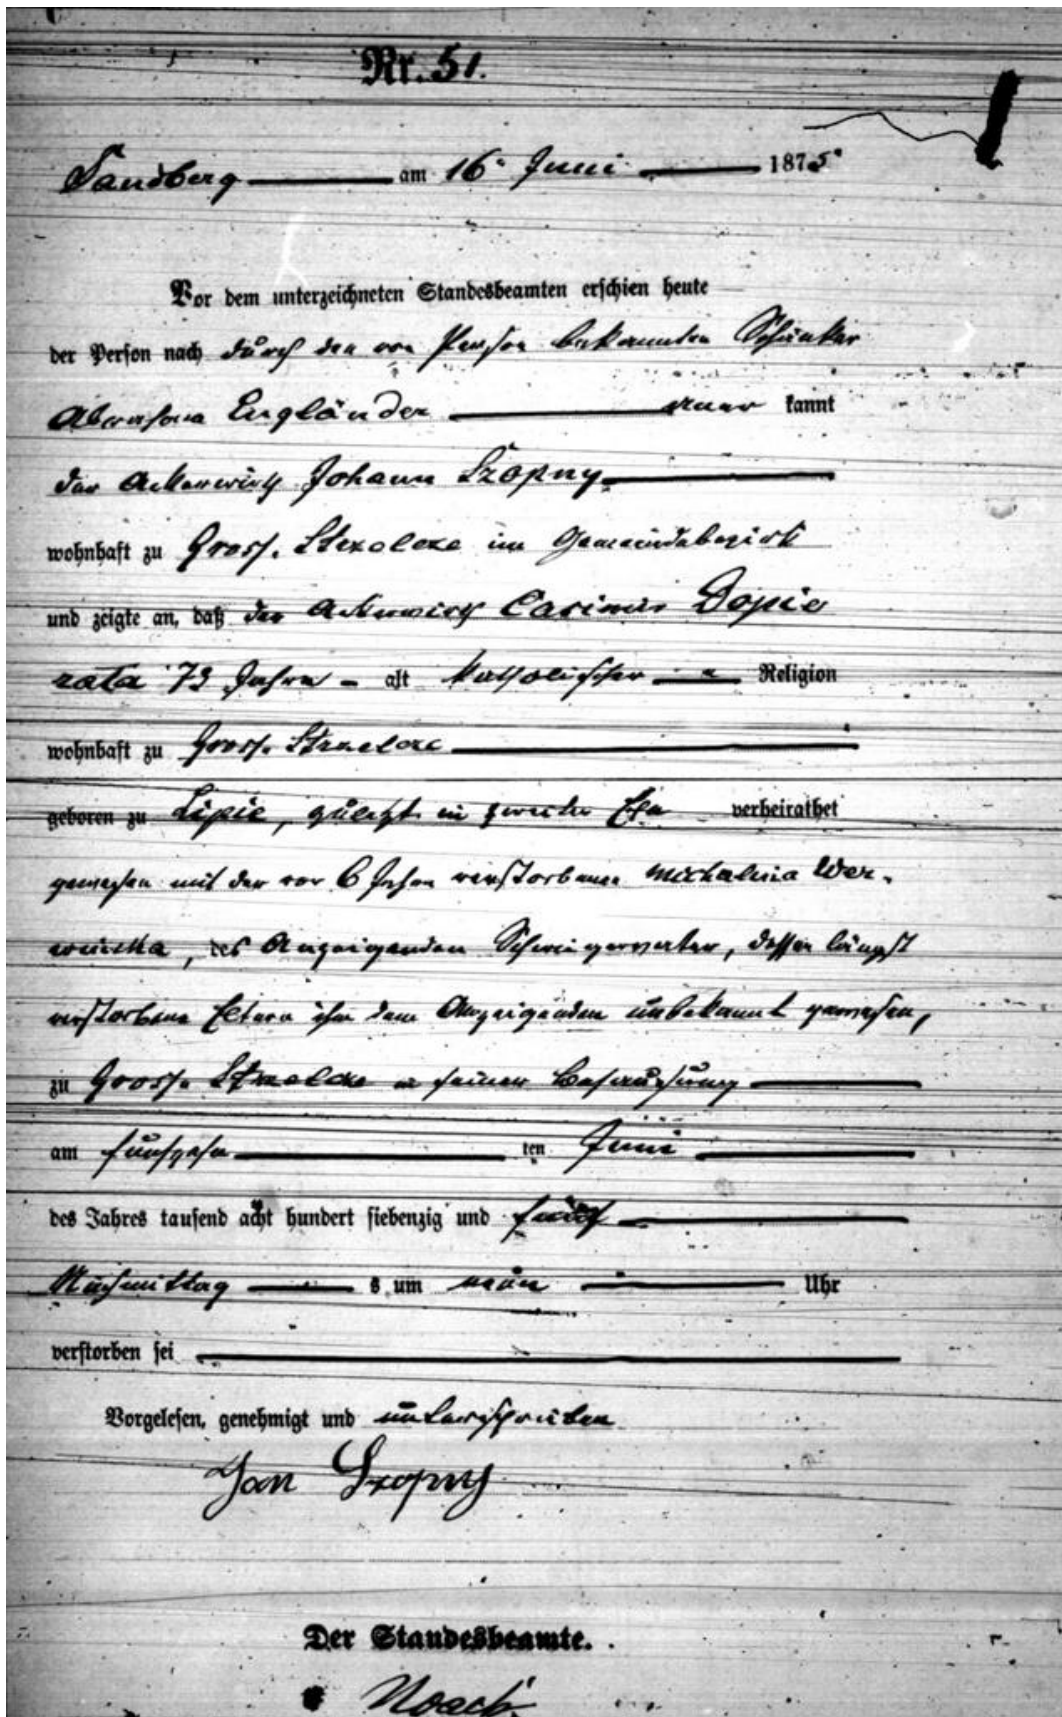 Nr. 51.
Sandberg am 16 Juni 1875
Vor dem unterzeichneten Standesbeamten erschien heute
der Person nach durch den von Person bekannten Schänker
Abraham Engländer aner kannt
der Ackerwirth Johann Szopny
wohnhaft zu Gross. Strzelcze im Gemeindebezirk
und zeigte an, daß der Ackerwirth Casimir Dopie
rala 73 Jahre alt katholischer Religion
wohnhaft zu Gross. Strzelcze
geboren zu Lipie, zuletzt in zweiter Ehe verheirathet
gewesen mit der vor 6 Jahren verstorbenen Michalina
des Anzeigenden Schwiegervater, dessen längst
verstorbene Eltern ihm dem Anzeigenden unbekannt gewesen,
zu Gross. Strzelcze in seiner Behausung
am fünfzehn ten Juni
des Jahres tausend acht hundert siebenzig und fünf
Nachmittag s um neun Uhr
verstorben sei
Vorgelesen, genehmigt und unterschrieben
Jan Szopny
Der Standesbeamte.
Noack